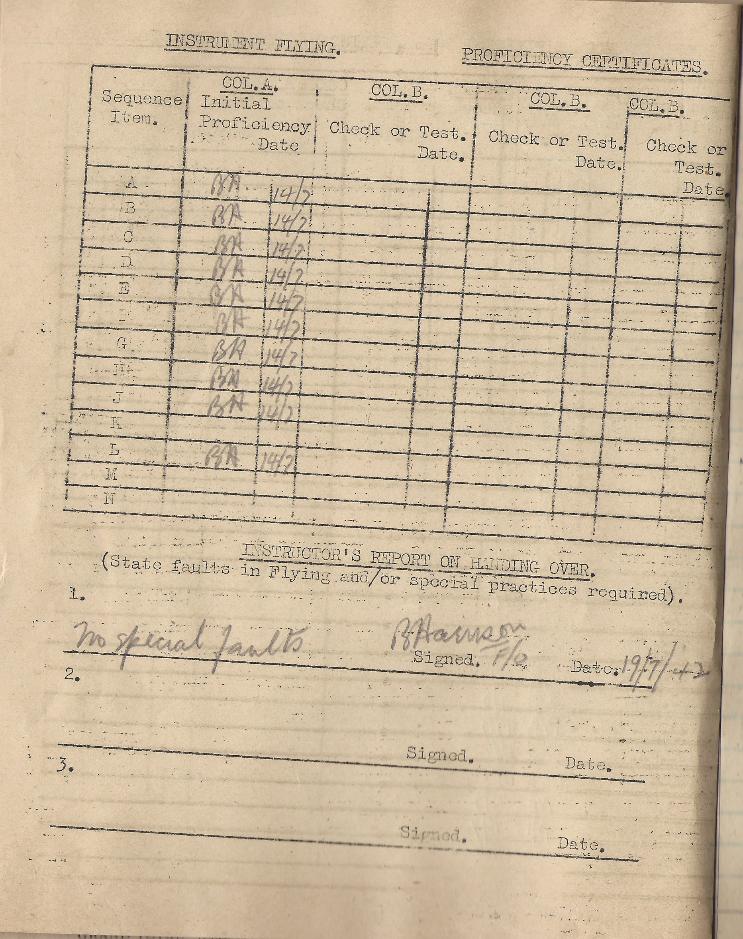 INSTRUMENT FLYING. PROFICIENCY CERTIFICATES.
Sequence Item. COL.A. Initial Proficiency Date COL.B. Check or Test. Date. COL.B. Check or Test. Date. COL.B. Check or Test. Date.
A BH 14/7
B BH 14/7
C BH 14/7
D BH 14/7
E BH 14/7
BH 14/7
G BH 14/7
H BH 14/7
J BH 14/7
K
L BH 14/7
M
N
INSTRUCTOR'S REPORT ON HANDING OVER.
(State faults in Flying and/or special practices required).
1.
No special faults Signed. BHarrison F/O Date. 19/7/42
2.
Signed. Date.
3.
Signed. Date.